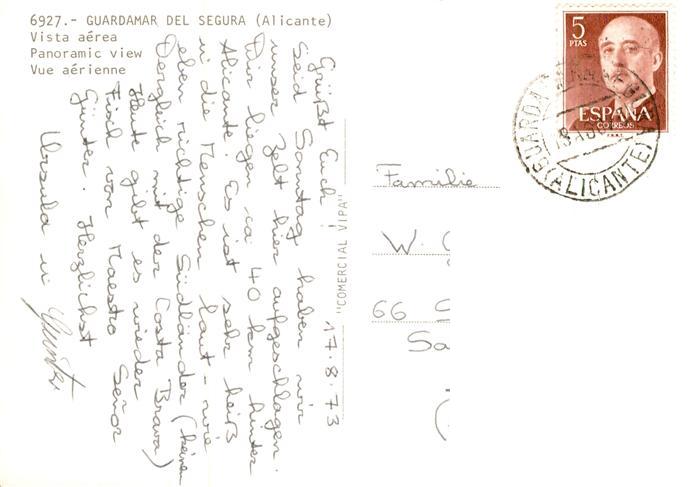 6927.- GUARDAMAR DEL SEGURA (Alicante)
Vista aérea
Panoramic view
Vue aérienne
17.8.73
Grüßt Euch!
Seid Sonntag haben wir
unser Zelt hier aufgeschlagen.
Wir liegen ca 40 km hinter
Alicante Es ist sehr heiß
u die Menschen laut - wie
eben richtige Südländer (keinen
Vergleich mit der Costa Brava)
Heute gibt es wieder
Fisch von Maestro Señor
Günter. Herzlichst
Ursula u Günter
"COMERCIAL VIPA"
5
PTAS
ESPAÑA
CORREOS
F.N.M.T.
(ALICANTE)
Familie
W.
66
Sa